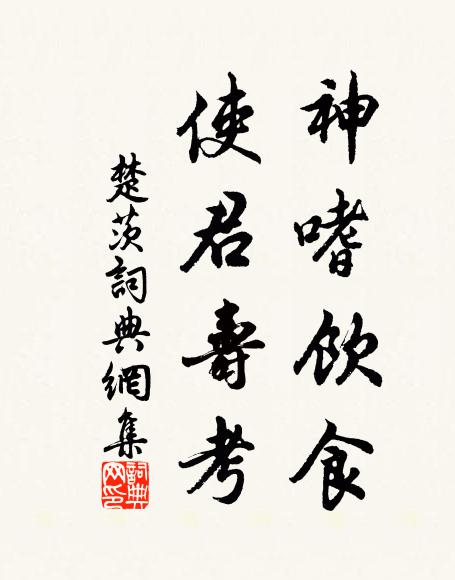 神嗜飲食
使君壽考
楚茨詞典網集
詞典网印